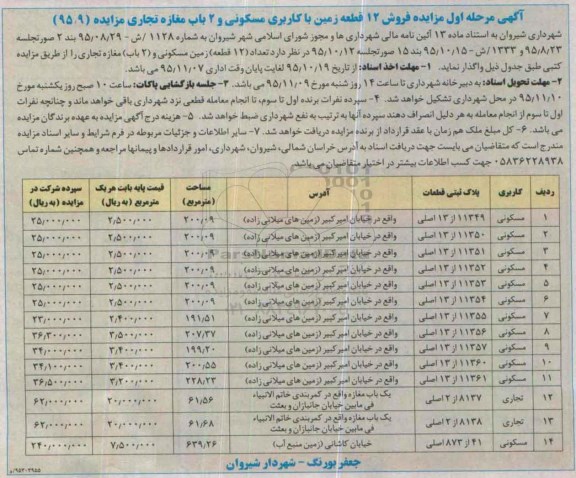 آگهی مرحله اول مزایده فروش ۱۲ قطعه زمین با کاربری مسکونی و ۲ باب مغازه تجاری مزایده (۹۵.۹)
شهرداری شیروان به استناد ماده ۱۳ آئین نامه مالی شهرداری ها و مجوز شورای اسلامی شهر شیروان به شماره ۱۱۲۸/ش - ۹۵/۰۸/۲۹ بند ۲ صورتجلسه
۹۵/۸/۲۳ و ۱۳۳۳/ش - ۹۵/۱۰/۱۵ بند ۱۵ صورتجلسه ۹۵/۱۰/۱۲ در نظر دارد تعداد (۱۲ قطعه) زمین مسکونی و (۲ باب) مغازه تجاری را از طریق مزایده
کتبی طبق جدول ذیل واگذار نماید. ۱- مهلت اخذ اسناد: از تاریخ ۹۵/۱۰/۱۹ لغایت پایان وقت اداری ۹۵/۱۱/۰۷ می باشد.
۲- مهلت تحویل اسناد: به دبیرخانه شهرداری تا ساعت ۱۴ روز شنبه مورخ ۹۵/۱۱/۰۹ می باشد. ۳- جلسه بازگشایی پاکات: ساعت ۱۰ صبح روز یکشنبه مورخ
۹۵/۱۱/۱۰ در محل شهرداری تشکیل خواهد شد. ۴- سپرده نفرات برنده اول تا سوم، تا انجام معامله قطعی نزد شهرداری باقی خواهد ماند و چنانچه نفرات
اول تا سوم از انجام معامله به هر دلیل انصراف دهند سپرده آنها به ترتیب به نفع شهرداری ضبط خواهد شد. ۵- هزینه درج آگهی مزایده به عهده برندگان مزایده
می باشد. ۶- کل مبلغ ملک هم زمان با عقد قرارداد از برنده مزایده دریافت خواهد شد. ۷- سایر اطلاعات و جزئیات مربوطه در فرم شرایط و سایر اسناد مزایده
مندرج است که متقاضیان می بایست جهت دریافت اسناد به آدرس خراسان شمالی، شیروان، شهرداری، امور قراردادها و پیمانها مراجعه و همچنین شماره تماس
۰۵۸۳۶۲۲۸۹۳۸ جهت کسب اطلاعات بیشتر در اختیار متقاضیان می باشد.
ردیف کاربری پلاک ثبتی قطعات آدرس مساحت (مترمربع) قیمت پایه بابت هر یک مترمربع (به ریال) سپرده شرکت در مزایده (به ریال)
۱ مسکونی ۱۱۳۴۹ از ۱۳ اصلی واقع در خیابان امیرکبیر (زمین های میلانی زاده) ۲۰۰,۰۹ ۲,۵۰۰,۰۰۰ ۲۵,۰۰۰,۰۰۰
۲ مسکونی ۱۱۳۵۰ از ۱۳ اصلی واقع در خیابان امیرکبیر (زمین های میلانی زاده) ۲۰۰,۰۹ ۲,۵۰۰,۰۰۰ ۲۵,۰۰۰,۰۰۰
۳ مسکونی ۱۱۳۵۱ از ۱۳ اصلی واقع در خیابان امیرکبیر (زمین های میلانی زاده) ۲۰۰,۰۹ ۲,۵۰۰,۰۰۰ ۲۵,۰۰۰,۰۰۰
۴ مسکونی ۱۱۳۵۲ از ۱۳ اصلی واقع در خیابان امیرکبیر (زمین های میلانی زاده) ۲۰۰,۰۹ ۲,۵۰۰,۰۰۰ ۲۵,۰۰۰,۰۰۰
۵ مسکونی ۱۱۳۵۳ از ۱۳ اصلی واقع در خیابان امیرکبیر (زمین های میلانی زاده) ۲۰۰,۰۹ ۲,۵۰۰,۰۰۰ ۲۵,۰۰۰,۰۰۰
۶ مسکونی ۱۱۳۵۴ از ۱۳ اصلی واقع در خیابان امیرکبیر (زمین های میلانی زاده) ۲۰۰,۰۹ ۲,۵۰۰,۰۰۰ ۲۵,۰۰۰,۰۰۰
۷ مسکونی ۱۱۳۵۵ از ۱۳ اصلی واقع در خیابان امیرکبیر (زمین های میلانی زاده) ۱۹۱,۵۱ ۲,۴۰۰,۰۰۰ ۲۳,۰۰۰,۰۰۰
۸ مسکونی ۱۱۳۵۶ از ۱۳ اصلی واقع در خیابان امیرکبیر (زمین های میلانی زاده) ۲۰۷,۳۷ ۳,۵۰۰,۰۰۰ ۳۶,۳۰۰,۰۰۰
۹ مسکونی ۱۱۳۵۷ از ۱۳ اصلی واقع در خیابان امیرکبیر (زمین های میلانی زاده) ۱۹۹,۲۰ ۳,۴۰۰,۰۰۰ ۳۴,۰۰۰,۰۰۰
۱۰ مسکونی ۱۱۳۶۰ از ۱۳ اصلی واقع در خیابان امیرکبیر (زمین های میلانی زاده) ۲۰۰,۵۵ ۳,۴۰۰,۰۰۰ ۳۴,۱۰۰,۰۰۰
۱۱ مسکونی ۱۱۳۶۱ از ۱۳ اصلی واقع در خیابان امیرکبیر (زمین های میلانی زاده) ۲۲۸,۲۳ ۳,۲۰۰,۰۰۰ ۳۶,۵۰۰,۰۰۰
۱۲ تجاری ۸۱۳۷ از ۲ اصلی یک باب مغازه واقع در کمربندی خاتم الانبیاء فی مابین خیابان جانبازان و بعثت ۶۱,۵۶ ۲۰,۰۰۰,۰۰۰ ۶۲,۰۰۰,۰۰۰
۱۳ تجاری ۸۱۳۸ از ۲ اصلی یک باب مغازه واقع در کمربندی خاتم الانبیاء فی مابین خیابان جانبازان و بعثت ۶۱,۶۸ ۲۰,۰۰۰,۰۰۰ ۶۲,۰۰۰,۰۰۰
۱۴ مسکونی ۴۱ از ۸۷۳ اصلی خیابان کاشانی (زمین منبع آب) ۶۳۹,۲۶ ۷,۵۰۰,۰۰۰ ۲۴۰,۰۰۰,۰۰۰
جعفر بورنگ - شهردار شیروان